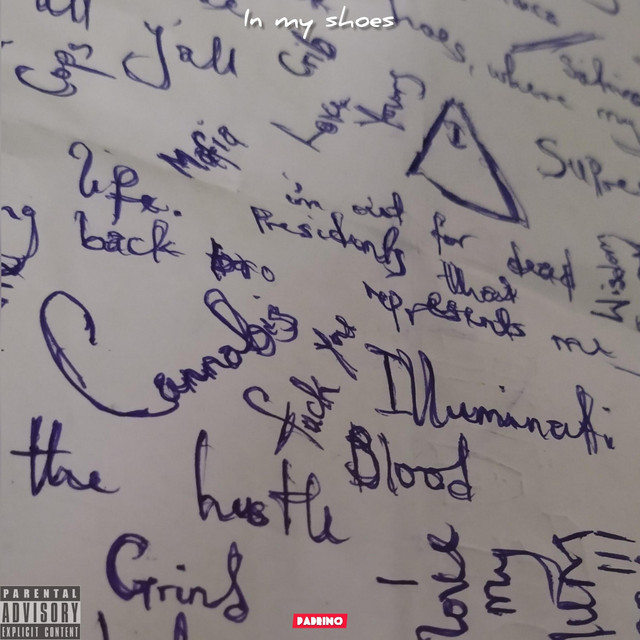 In my shoes
all
Cops
y'all
Crib
Love
Young
Mafia
Life.
back
Supre
im out for dead
Presidents
What
represents me
Wisdom
Cannabis
Fuck You
Illuminati
Blood
the hustle
Grind
I
love
my
!!!
PARENTAL
ADVISORY
EXPLICIT CONTENT
PADRINO